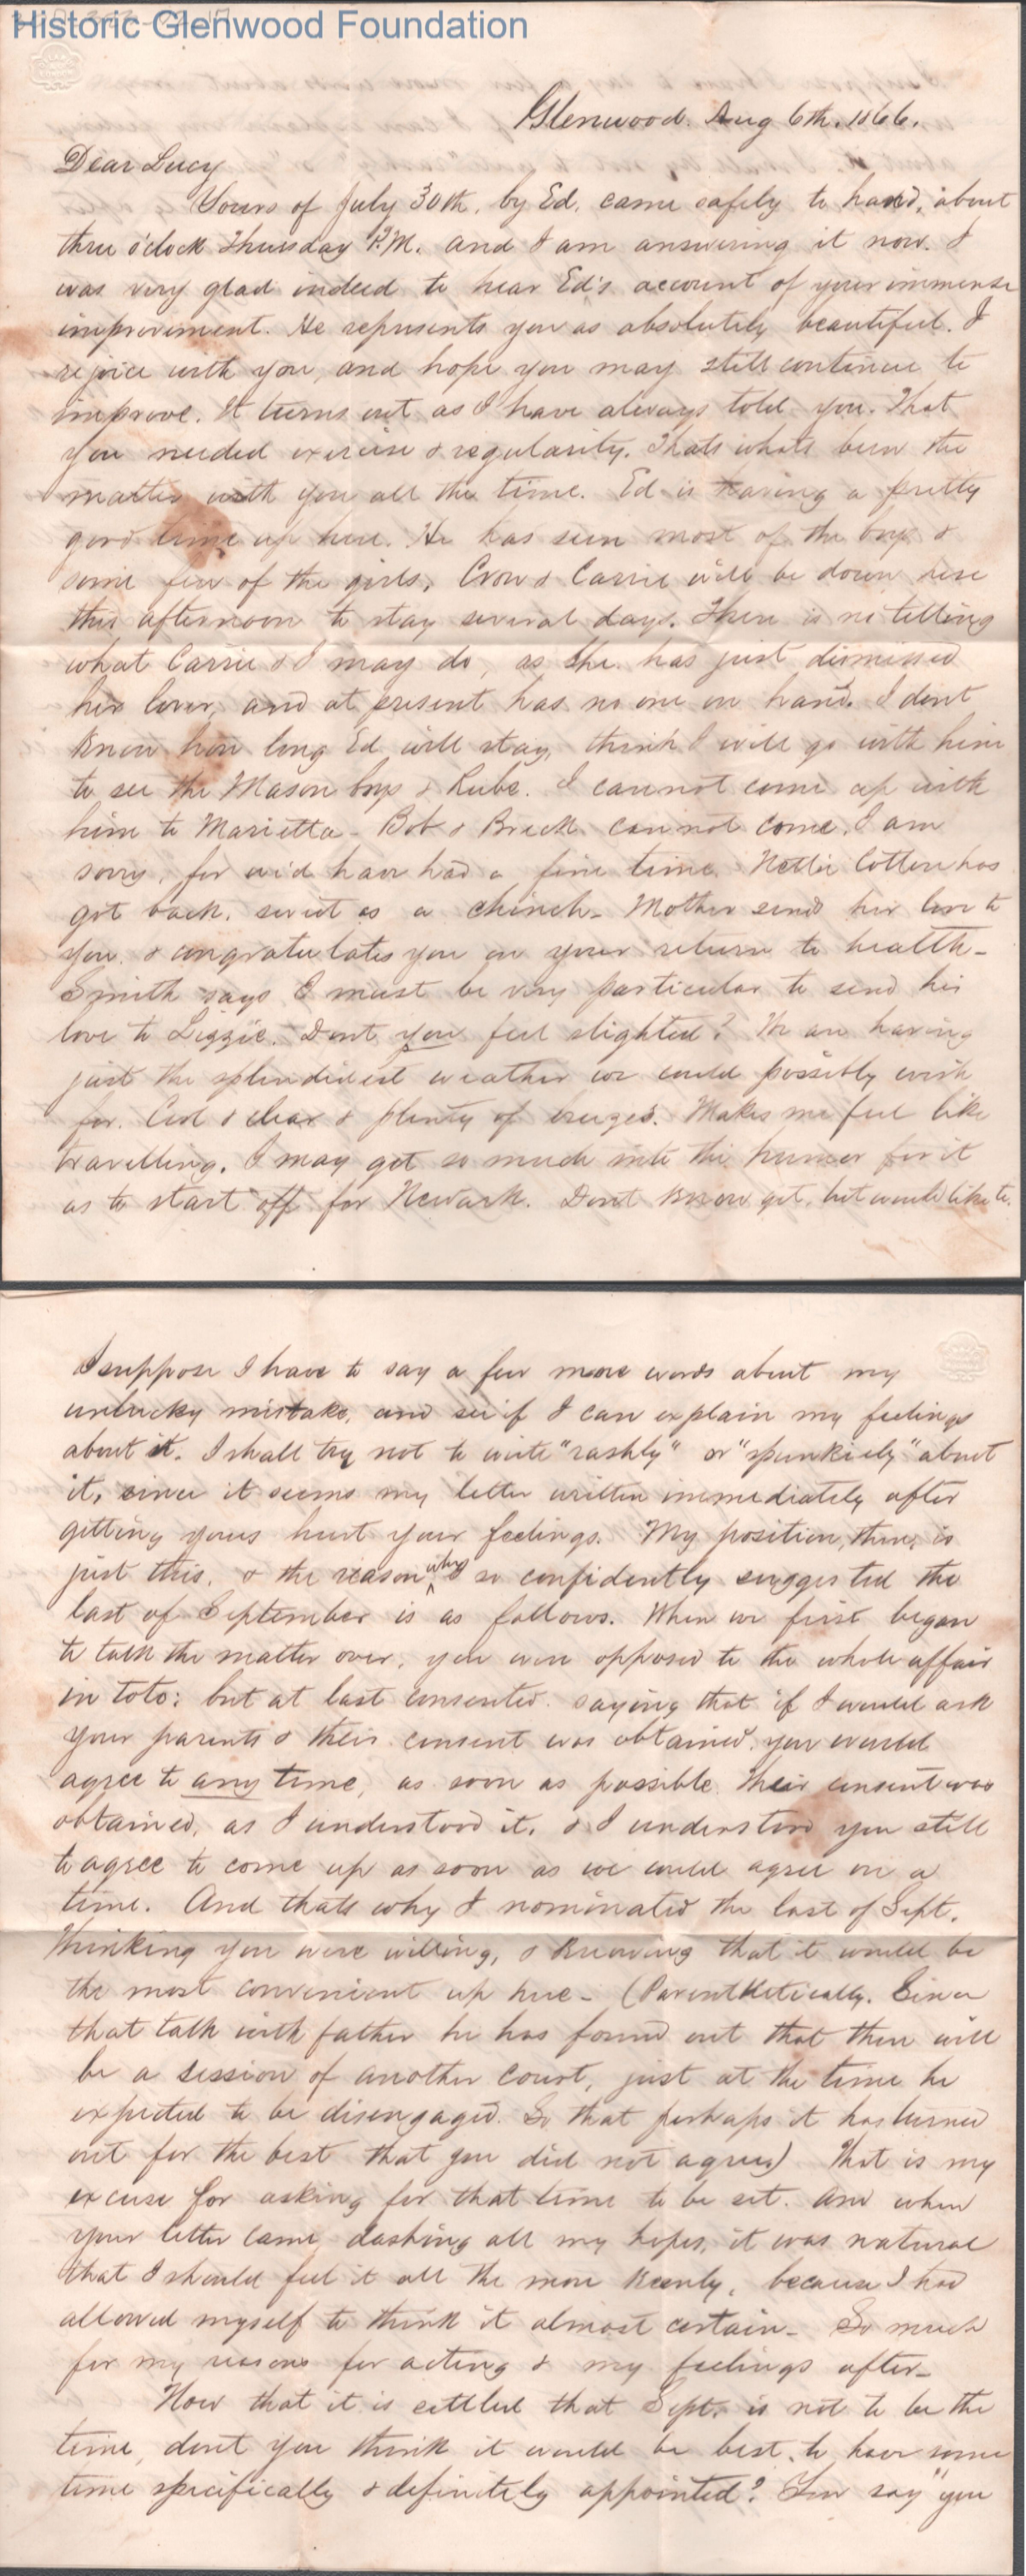 Historic Glenwood Foundation
Glenwood. Aug 6th. 1866.
Dear Lucy
Yours of July 30th. by Ed. came safely to hand, about
three o'clock Thursday P.M. and I am answering it now. I
was very glad indeed to hear Ed's account of your immense
improvement. He represents you as absolutely beautiful. I
rejoice with you, and hope you may still continue to
improve. It turns out as I have always told you. That
you needed exercise & regularity. Thats whats been the
matter with you all the time. Ed is having a pretty
good time up here. He has seen most of the boys &
some few of the girls. Crow & Carrie will be down here
this afternoon to stay several days. There is no telling
what Carrie & I may do, as she has just dismissed
her lover, and at present has no one on hand. I dont
know how long Ed will stay, think I will go with him
to see the Mason boys & Rube. I cannot come up with
him to Marietta - Bob & Breck cannot come. I am
sorry, for we'd have had a fine time. Nettie Cotten has
got back. sweet as a chinch - Mother sends her love to
you & congratulates you on your return to health -
Smith says I must be very particular to send his
love to Lizzie. Dont you feel slighted? We are having
just the splendidest weather we could possibly wish
for. Cool & clear & plenty of breezes. Makes me feel like
travelling. I may get so much into the humor for it
as to start off for Newark. Dont know yet, but would like to.
I suppose I have to say a few more words about my
unlucky mistake, and see if I can explain my feelings
about it. I shall try not to write "rashly" or "spunkiely" about
it, since it seems my letter written immediately after
getting yours hurt your feelings. My position, then, is
just this. & the reason why I so confidently suggested the
last of September is as follows. When we first began
to talk the matter over, you were opposed to the whole affair
in toto: but at last consented. saying that if I would ask
your parents & their consent was obtained, you would
agree to any time, as soon as possible. Their consent was
obtained, as I understood it. & I understood you still
to agree to come up as soon as we could agree on a
time. And thats why I nominated the last of Sept.
Thinking you were willing, & knowing that it would be
the most convenient up here - (Parenthetically. Since
that talk with father he has found out that there will
be a session of another court, just at the time he
expected to be disengaged. So that perhaps it has turned
out for the best that you did not agree) That is my
excuse for asking for that time to be set. And when
your letter came, dashing all my hopes, it was natural
that I should feel it all the more keenly, because I had
allowed myself to think it almost certain - So much
for my reasons for acting & my feelings after -
Now that it is settled that Sept. is not to be the
time, dont you think it would be best, to have some
time specifically & definitely appointed? You say "you